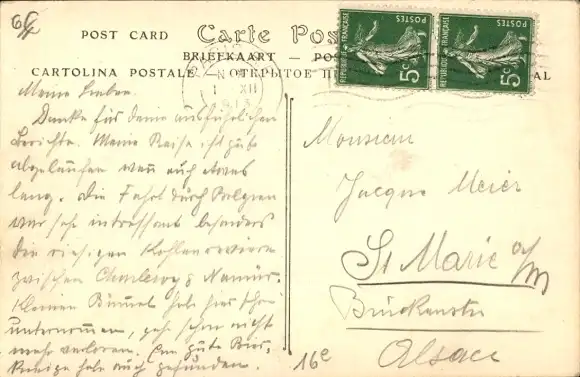 POST CARD
Carte Pos
BRIEFKAART — POS
CARTOLINA POSTALE — ОТКРЫТОЕ
AL
RÉPUBLIQUE FRANÇAISE
POSTES
5c
RÉPUBLIQUE FRANÇAISE
POSTES
5c
XII
Meine Lieben.
Danke für deine ausführlichen
Berichte. Meine Reise ist gute
abgelaufen wenn auch etwas
lang. Die Fahrt durch Belgien
war sehr interessant besonders
die riesigen Kohlenreviere
zwischen Charleroy & Namür.
Kleinen Bummel habe hier schon
unternommen, gehe schon nicht
mehr verloren. Eine gute
habe auch gefunden.
16e
Monsieur
Jacque Meier
St Marie a/M
Brückenstr
Alsace